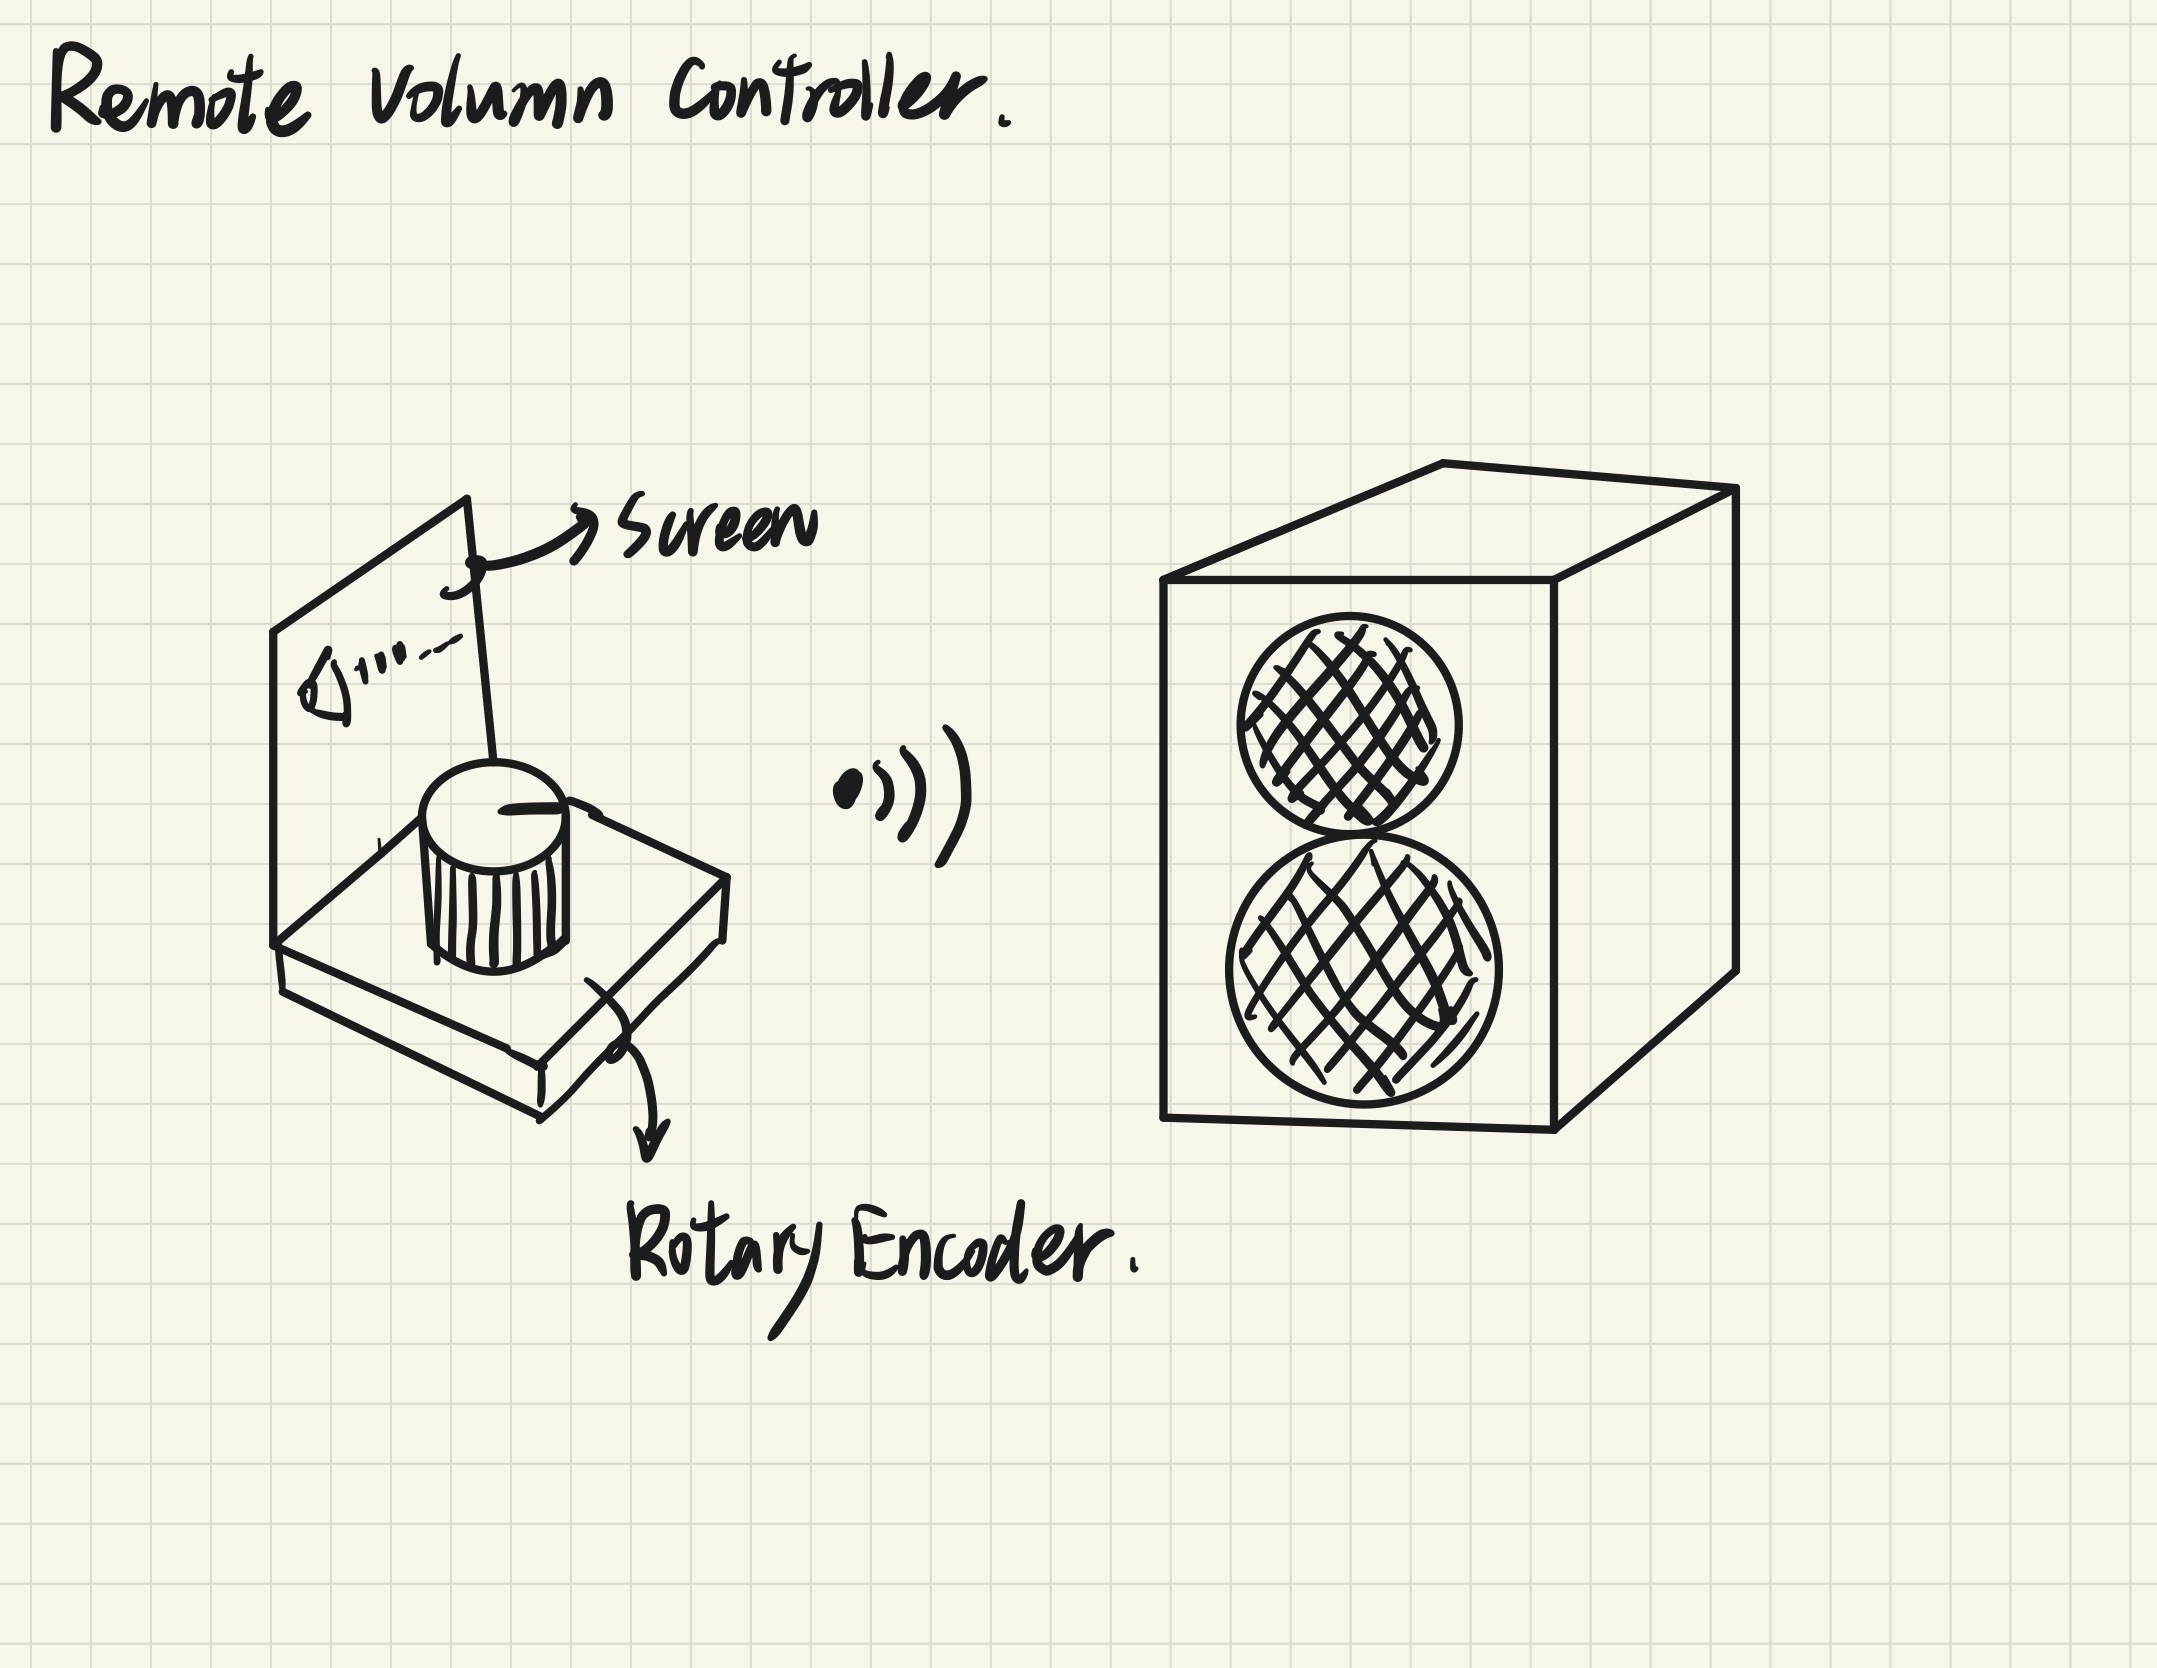 Remote Volumn Controller.
Screen
Rotary Encoder.